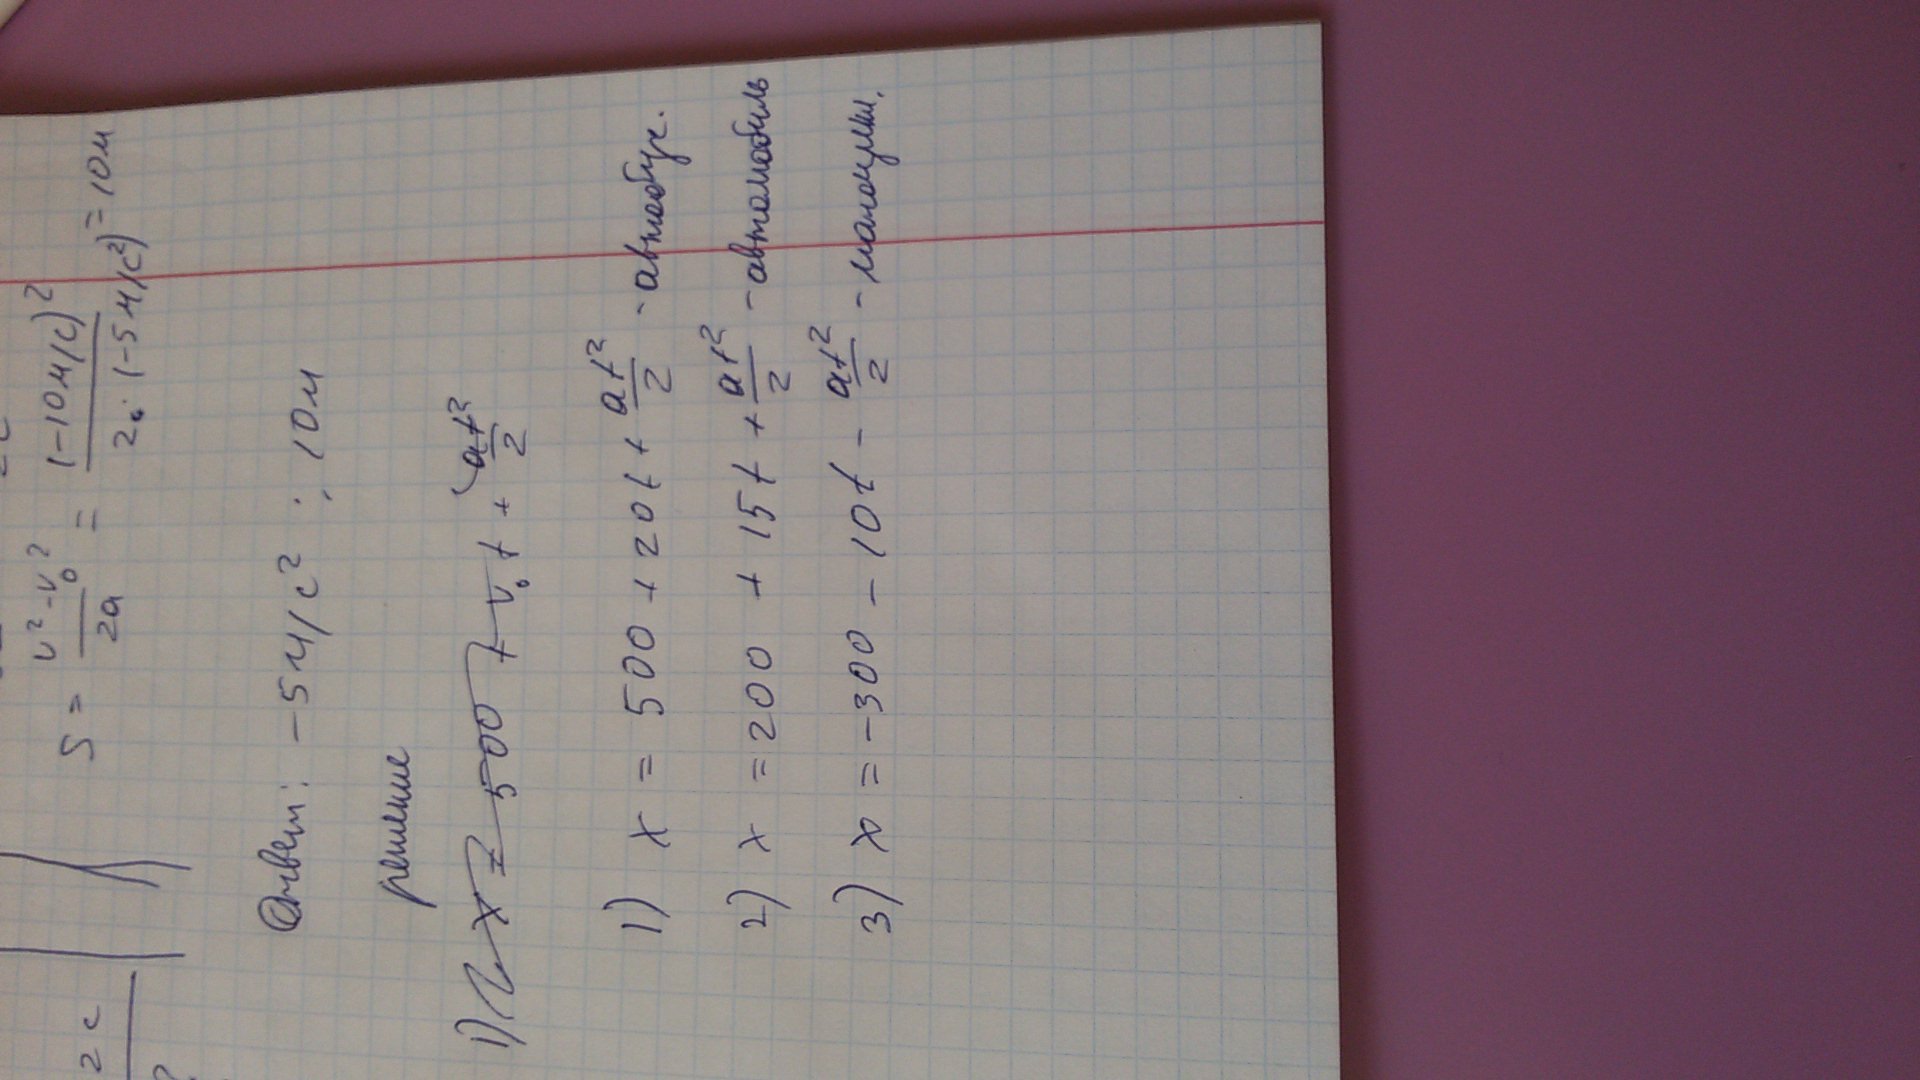 2 с
S = (v² - v₀²)/(2a) = (-10м/с)²/(2 · (-5м/с²)) = 10м
Ответ: -5м/с² ; 10м
решение
1) x = 500 + v₀t + at²/2
1) x = 500 + 20t + at²/2 - автобус.
2) x = 200 + 15t + at²/2 - автомобиль
3) x = -300 - 10t - at²/2 - мотоцикл.